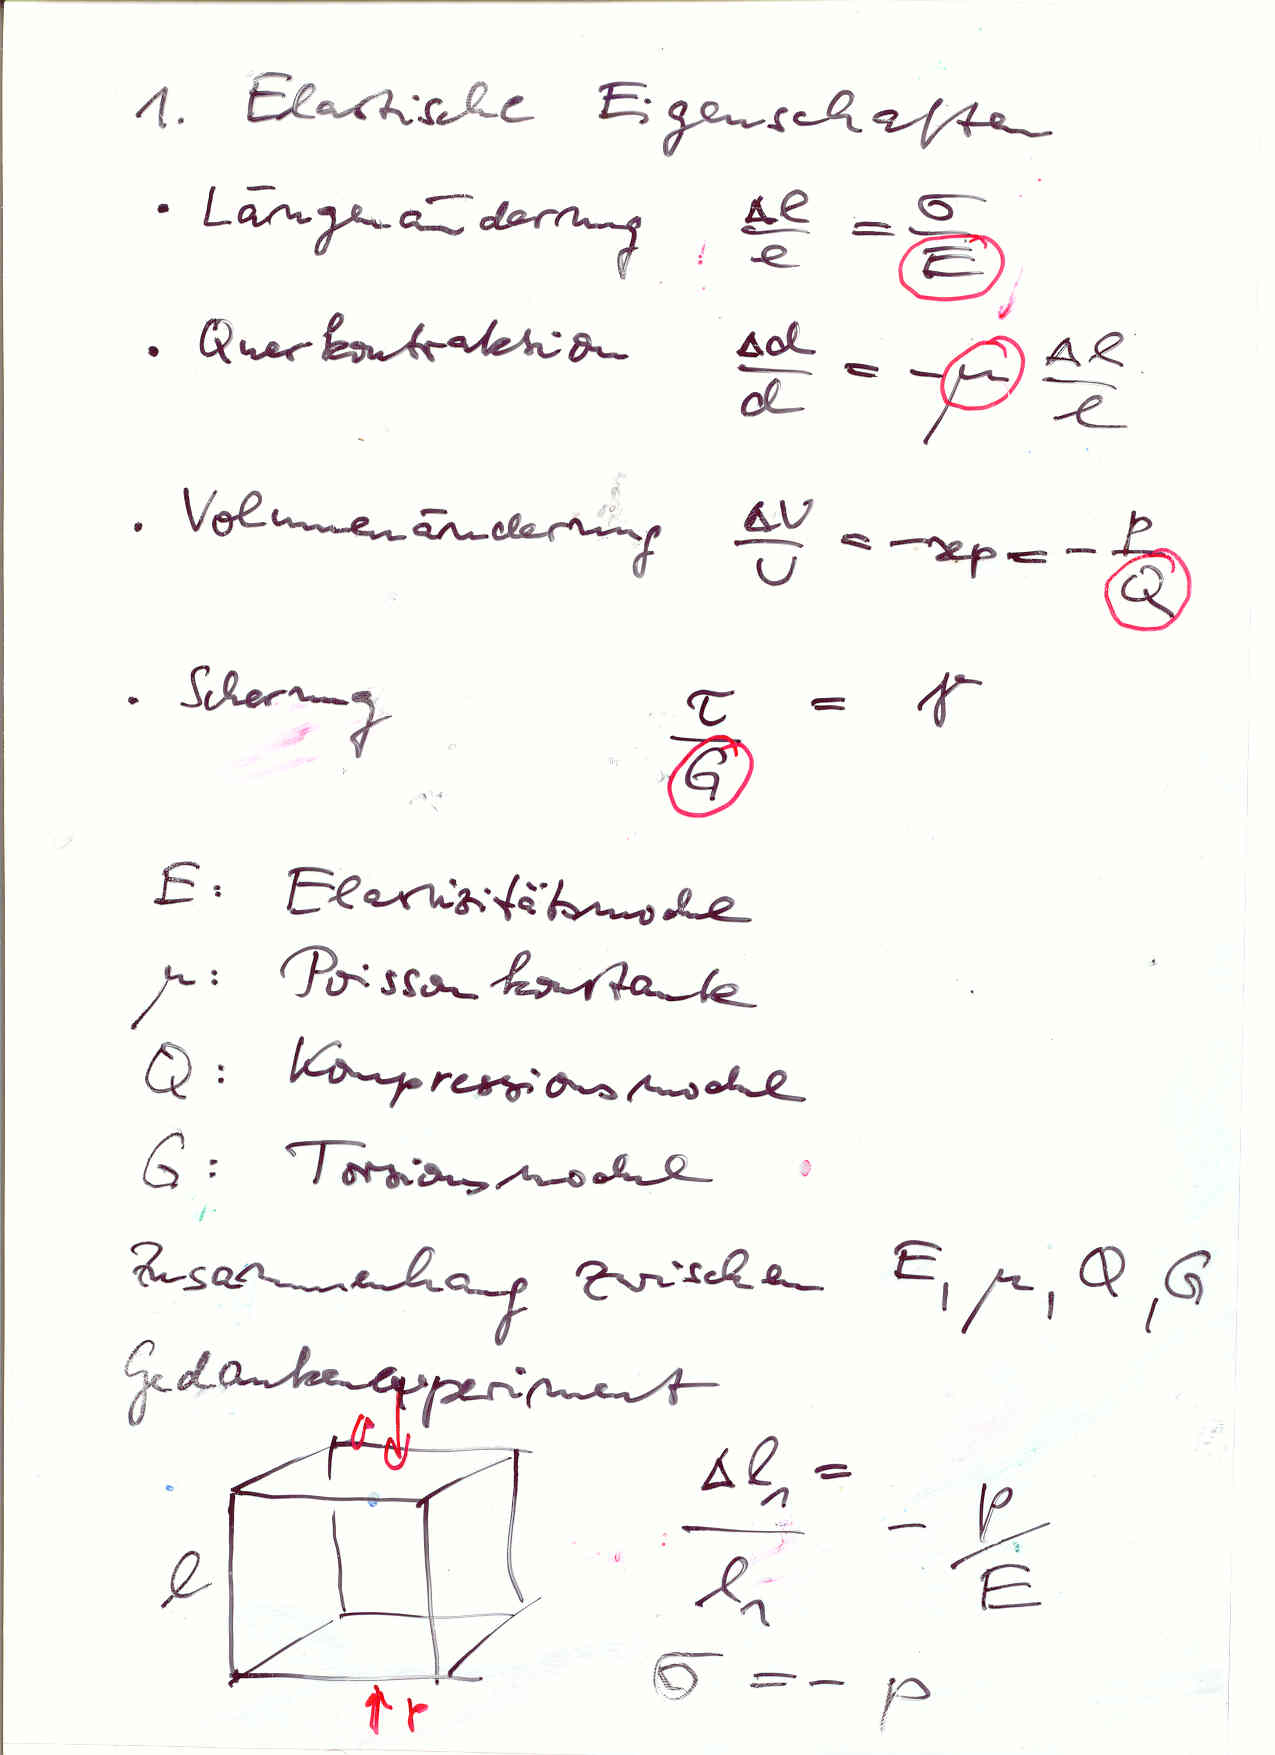 1. Elastische Eigenschaften
· Längenänderung Δl/l = σ/E
· Querkontraktion Δd/d = -μ Δl/l
· Volumenänderung ΔV/V = -κp = - p/Q
· Scherung τ/G = γ
E: Elastizitätsmodul
μ: Poissonkonstante
Q: Kompressionsmodul
G: Torsionsmodul
Zusammenhang zwischen E, μ, Q, G
Gedankenexperiment
l Δl₁/l₁ = - p/E
σ = - p